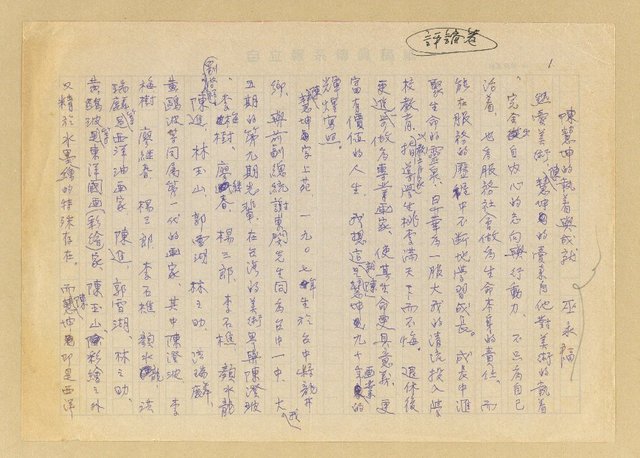 評論卷
1
陳慧坤的執着與成就 巫永福
熱愛美術,陳慧坤的畫業自他對美術的執着
完全出自內心的志向與行動力,不只為自己
活着,也為服務社會做為生命本身的責任,而
能在服務歷程中不斷地學習成長。成長中滙
聚生命的靈泉,日華為一服大我的清流投入學
校教育,指導學生桃李滿天下而不悔。退休後
更進步做為專業畫家,使其生命更具意義,更
富有價值的人生。我想這是陳慧坤九十畫業的
輝煌寫照。
陳慧坤畫家上苑,一九0七年生於台中縣龍井
鄉,與前副總統謝東閔先生同為台中一中,大我
五期的第九期先輩,在台灣的美術界與陳澄波
、李梅樹、廖繼春、楊三郎、李石樵、顏水龍
劉啓祥、陳進、林玉山、郭雪湖、林之助、洪瑞麟、
黃鷗波等同屬第一代的画家。其中陳澄波、李
梅樹、廖繼春、楊三郎、李石樵、顏水龍、洪
瑞麟等是西洋油画家,陳進、郭雪湖、林之助、
黃鷗波等是東洋國画(彩繪)家,陳玉山除彩繪之外
又精於水墨繪的特殊存在。而陳慧坤卻是西洋